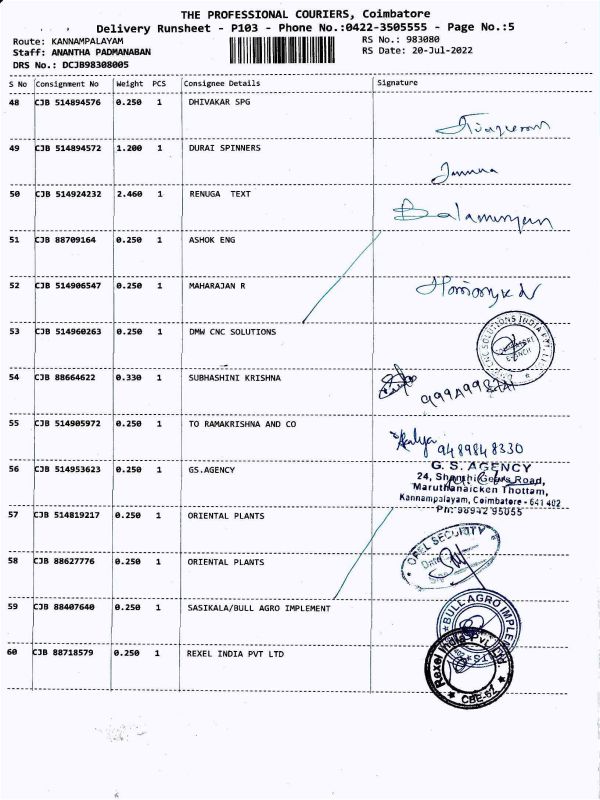 THE PROFESSIONAL COURIERS, Coimbatore
Delivery Runsheet - P103 - Phone No.:0422-3505555 - Page No.:5
Route: KANNAMPALAYAM RS No.: 983080
Staff: ANANTHA PADMANABAN RS Date: 20-Jul-2022
DRS No.: DCJB98308005
S No Consignment No Weight PCS Consignee Details Signature
48 CJB 514894576 0.250 1 DHIVAKAR SPG
49 CJB 514894572 1.200 1 DURAI SPINNERS
50 CJB 514924232 2.460 1 RENUGA TEXT
51 CJB 88709164 0.250 1 ASHOK ENG
52 CJB 514906547 0.250 1 MAHARAJAN R
53 CJB 514960263 0.250 1 DMW CNC SOLUTIONS
CNC SOLUTIONS INDIA PVT LTD
54 CJB 88664622 0.330 1 SUBHASHINI KRISHNA
55 CJB 514905972 0.250 1 TO RAMAKRISHNA AND CO
9489848330
56 CJB 514953623 0.250 1 GS.AGENCY
G. S. AGENCY
24, Shanthi Gears Road,
Maruthanaicken Thottam,
Kannampalayam, Coimbatore - 641 402
Ph: 98942 95055
57 CJB 514819217 0.250 1 ORIENTAL PLANTS
OPEL SECURITY
Date
58 CJB 88627776 0.250 1 ORIENTAL PLANTS
59 CJB 88407640 0.250 1 SASIKALA/BULL AGRO IMPLEMENT
BULL AGRO IMPLEM
60 CJB 88718579 0.250 1 REXEL INDIA PVT LTD
Rexel India Pvt. Ltd
CBE-62